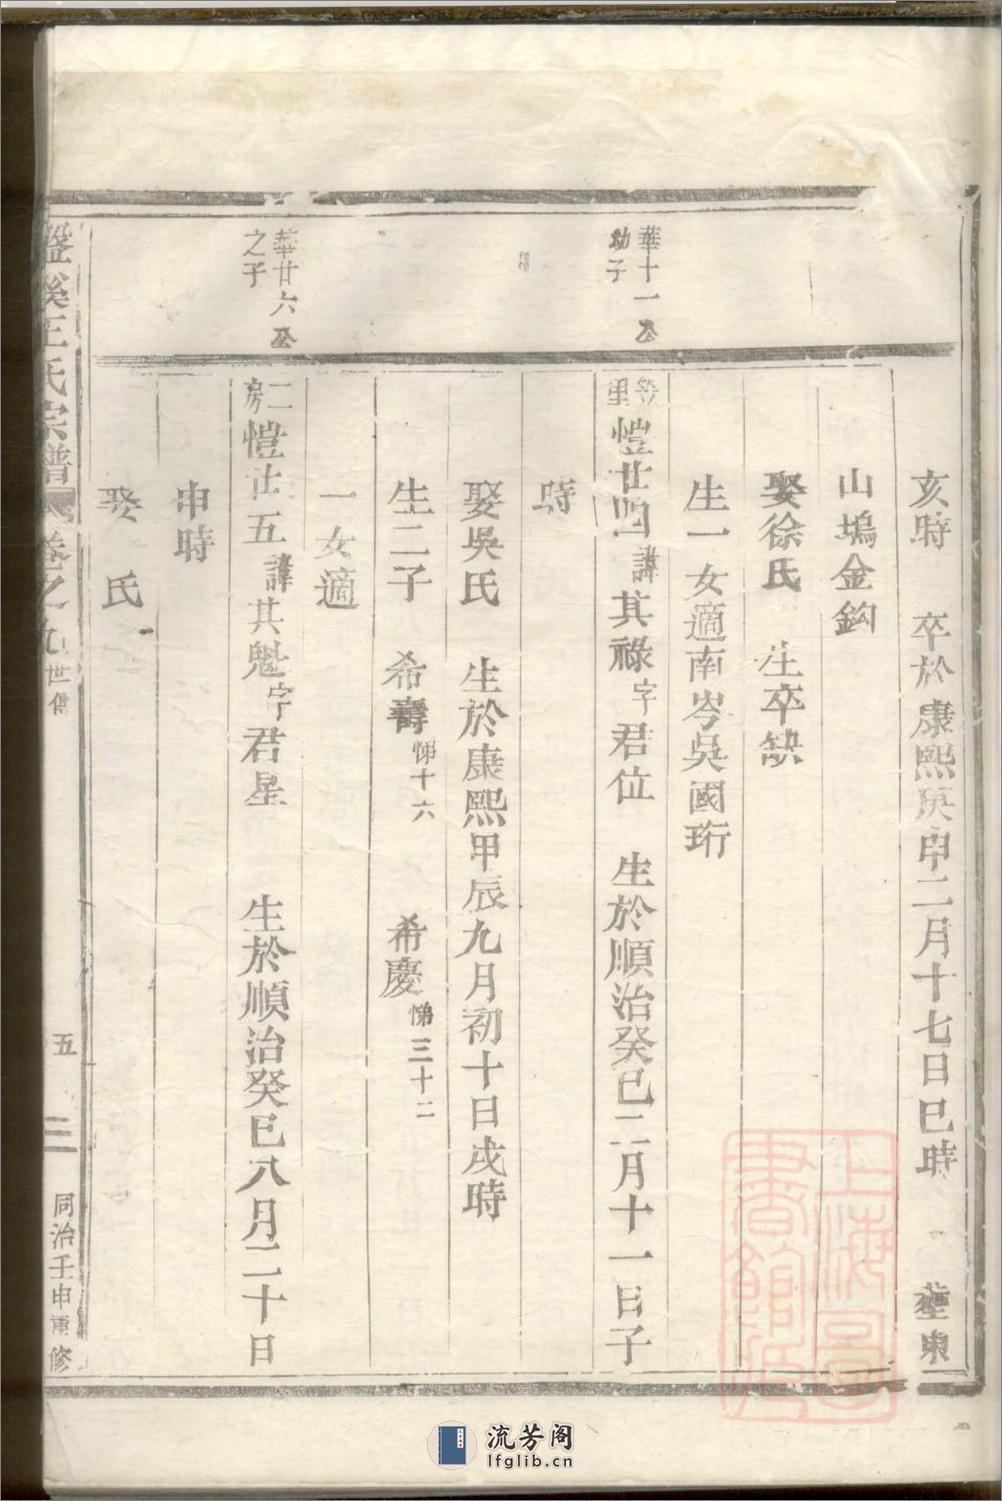 亥時　卒於康熙庚申二月十七日巳時　葬東
山塢金鈎
娶徐氏　生卒缺
生一女適南岑吳國珩
華十一公
幼子
愷廿四諱其祿字君位　生於順治癸巳二月十一日子
時
娶吳氏　生於康熙甲辰九月初十日戌時
生二子　希壽悌十六　希慶悌三十二
一女適
華廿六公
之子
二房愷廿五諱其魁字君星　生於順治癸巳八月二十日
申時
娶　氏
盤溪王氏宗譜　卷之九　世傳　五　同治壬申重修
上海圖書館藏
流芳阁
lfglib.cn